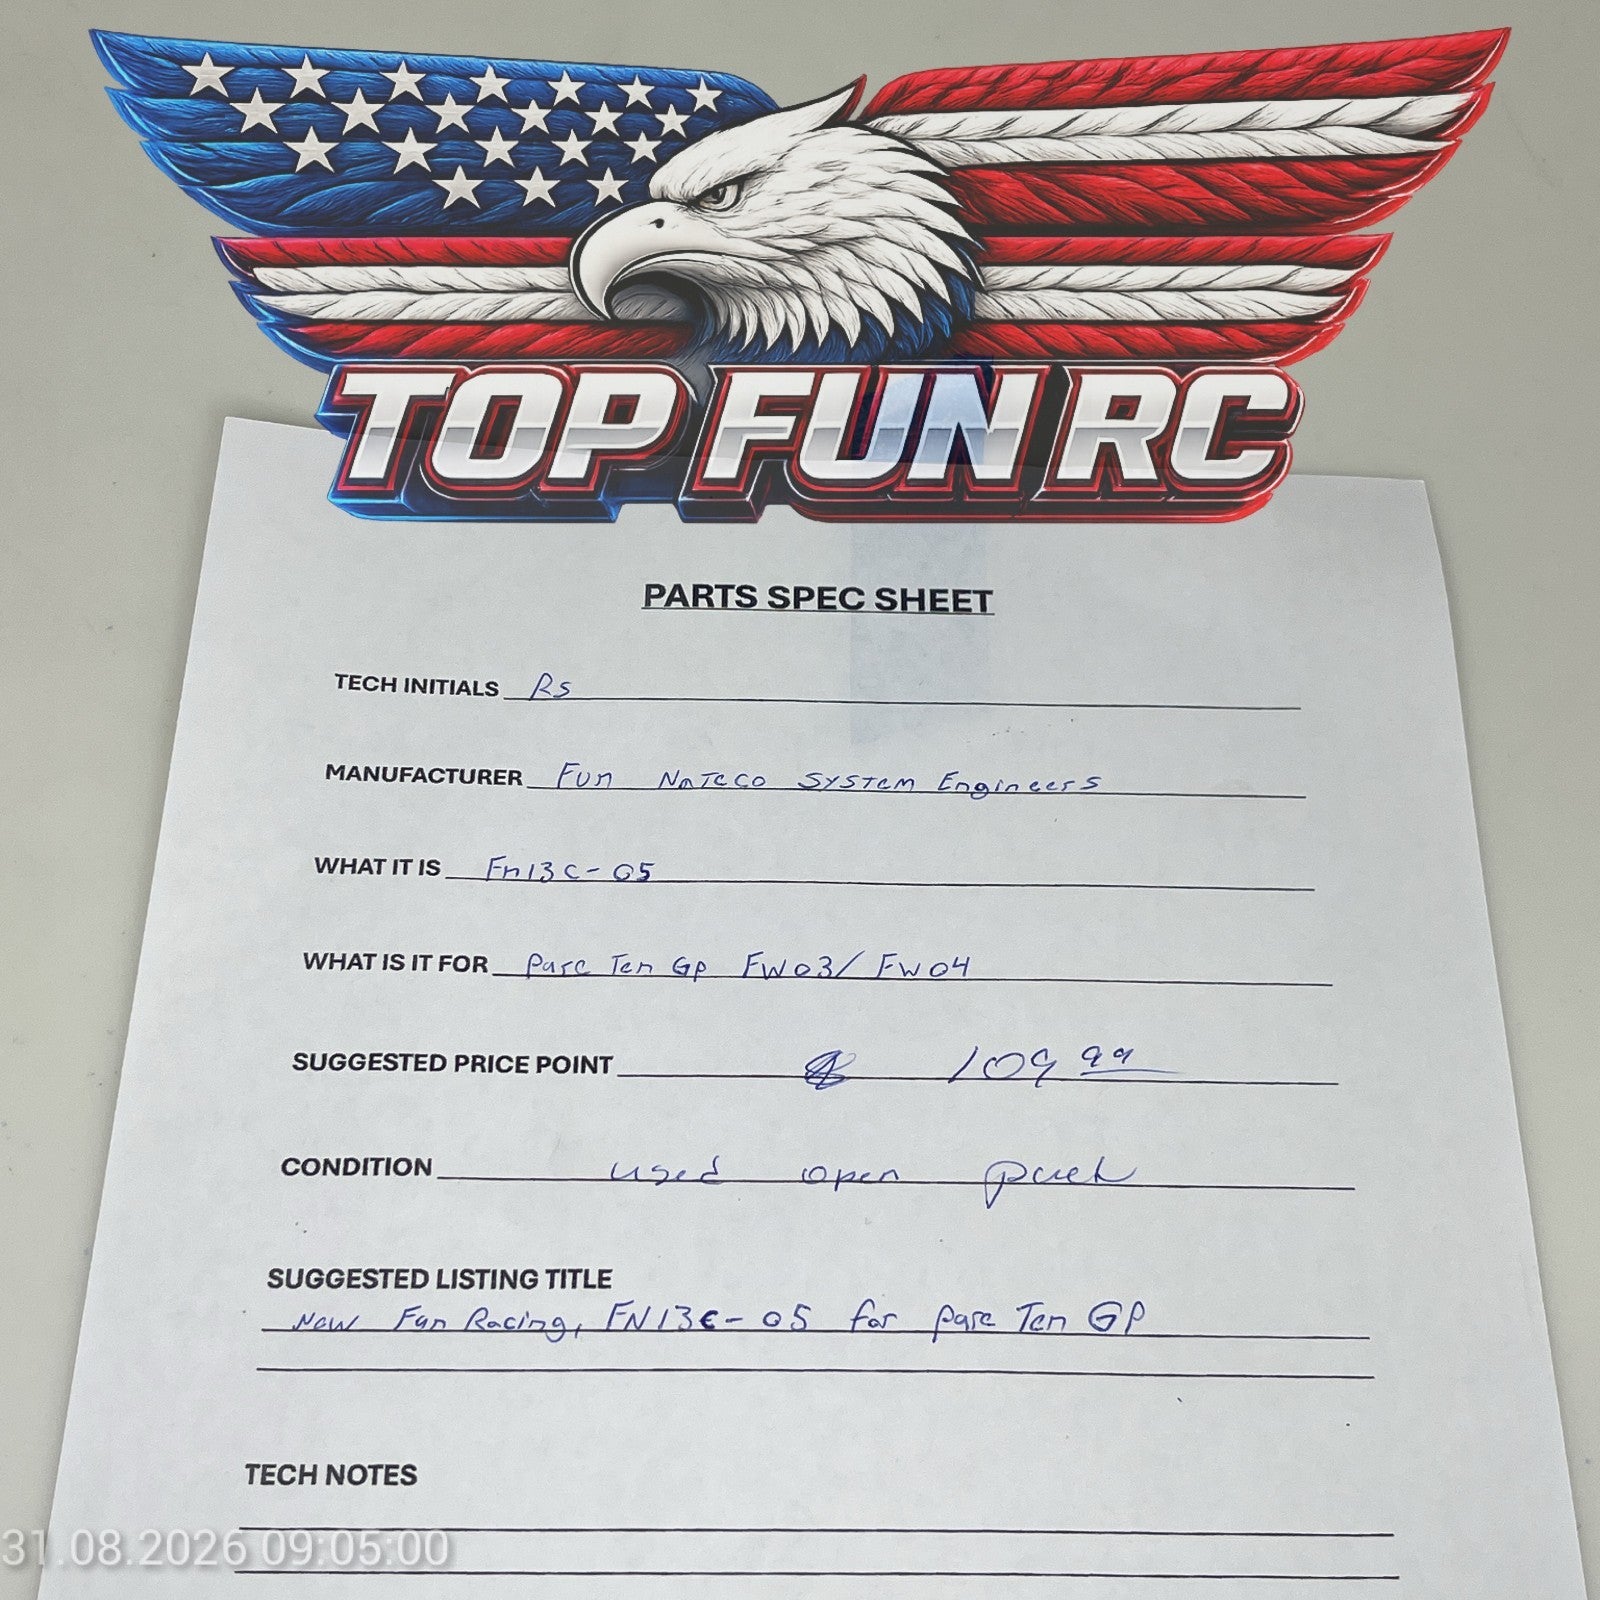 TOP FUN RC
PARTS SPEC SHEET
TECH INITIALS RS
MANUFACTURER Fun Nateco System Engineers
WHAT IT IS Fn13c-05
WHAT IS IT FOR Parc Ten GP FW03/FW04
SUGGESTED PRICE POINT 109 99
CONDITION used open pack
SUGGESTED LISTING TITLE
New Fan Racing, FN13C-05 for parc Ten GP
TECH NOTES
31.08.2026 09:05:00